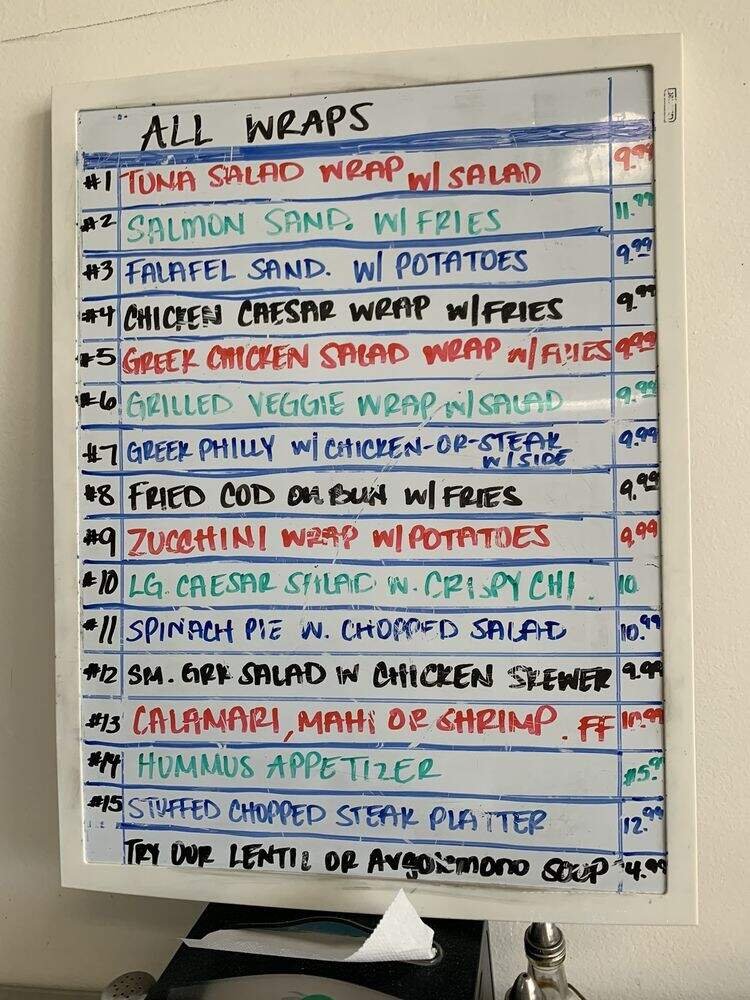 ALL WRAPS
#1 TUNA SALAD WRAP W/ SALAD 9.99
#2 SALMON SAND. W/ FRIES 11.99
#3 FALAFEL SAND. W/ POTATOES 9.99
#4 CHICKEN CAESAR WRAP W/FRIES 9.99
#5 GREEK CHICKEN SALAD WRAP W/ FRIES 9.99
#6 GRILLED VEGGIE WRAP W/ SALAD 9.99
#7 GREEK PHILLY W/ CHICKEN-OR-STEAK 9.99
W/SIDE
#8 FRIED COD ON BUN W/ FRIES 9.99
#9 ZUCCHINI WRAP W/ POTATOES 9.99
#10 LG. CAESAR SALAD W. CRISPY CHI. 10
#11 SPINACH PIE W. CHOPPED SALAD 10.99
#12 SM. GRK SALAD W CHICKEN SKEWER 9.99
#13 CALAMARI, MAHI OR SHRIMP. FF 10.99
#14 HUMMUS APPETIZER $5.9
#15 STUFFED CHOPPED STEAK PLATTER 12.99
TRY OUR LENTIL OR SOUP 4.99